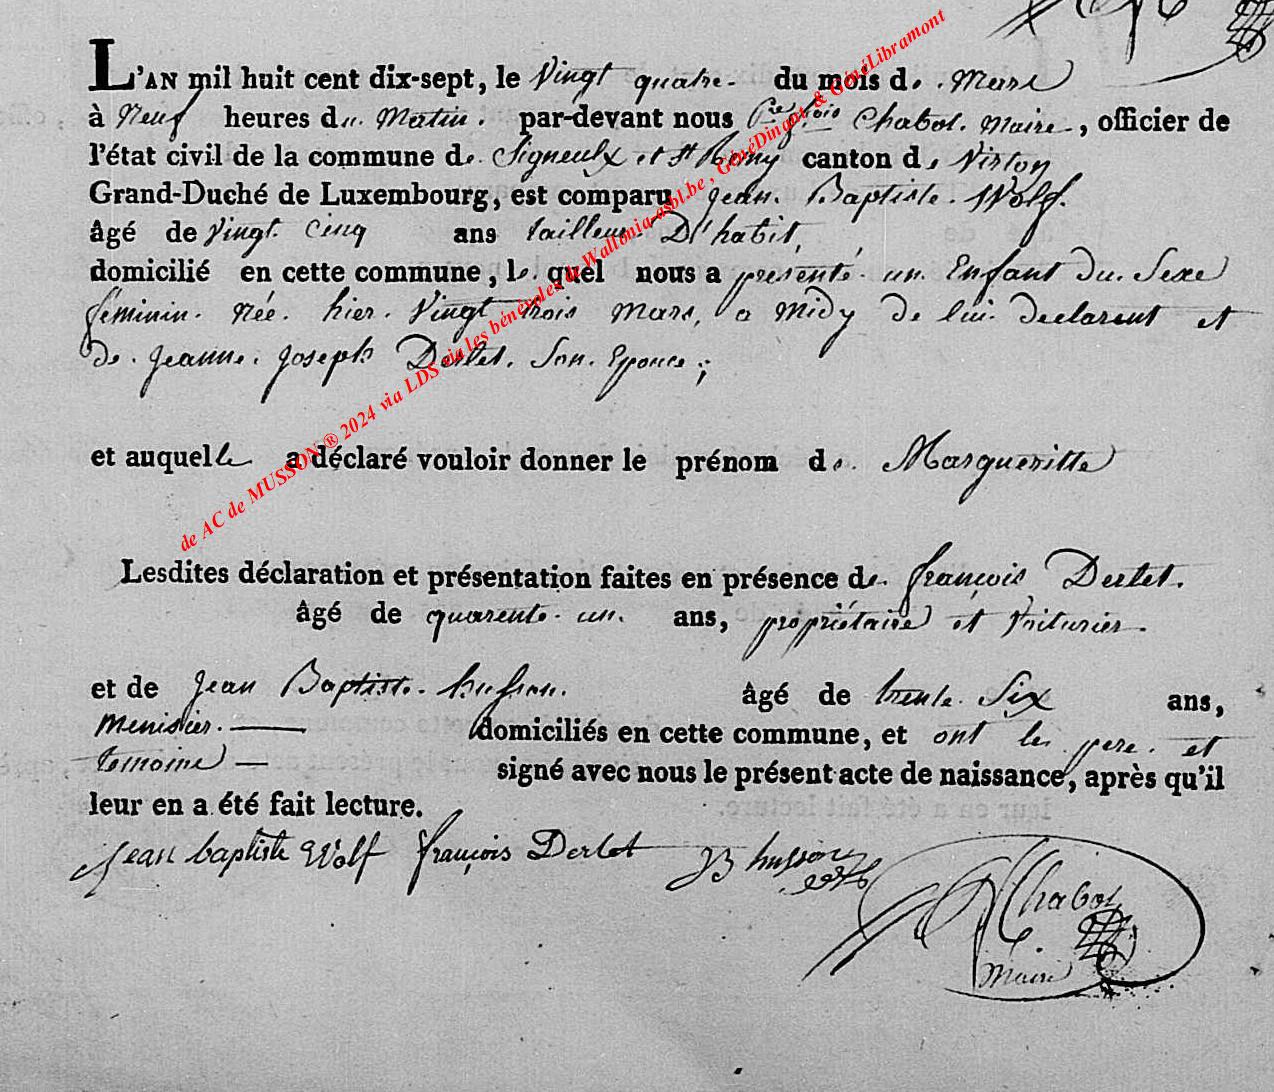 L'AN mil huit cent dix-sept, le Vingt quatre du mois de Mars
à Neuf heures du Matin. par-devant nous Pre fçois Chabot. Maire, officier de
l'état civil de la commune de Signeulx et St Remy canton de Virton
Grand-Duché de Luxembourg, est comparu Jean Baptiste Wolf.
âgé de Vingt Cinq ans tailleur D'habit,
domicilié en cette commune, le quel nous a présenté un Enfant du Sexe
féminin. Née. hier. Vingt trois Mars, a Midy de lui declarent et
de Jeanne Joseph Derlet. Son Epouce;
et auquelle a déclaré vouloir donner le prénom de Margueritte
Lesdites déclaration et présentation faites en présence de françois Derlet.
âgé de quarente un. ans, propriétaire et Voiturier.
et de Jean Baptiste husson. âgé de trente Six ans,
Menisier. domiciliés en cette commune, et ont les pere et
temoins signé avec nous le présent acte de naissance, après qu'il
leur en a été fait lecture.
Jean baptiste Wolf françois Derlet JB husson
Chabot
Maire
de AC de MUSSON ® 2024 via LDS via les bénévoles de Wallonia-asbl.be, GénéDinant & GénéLibramont